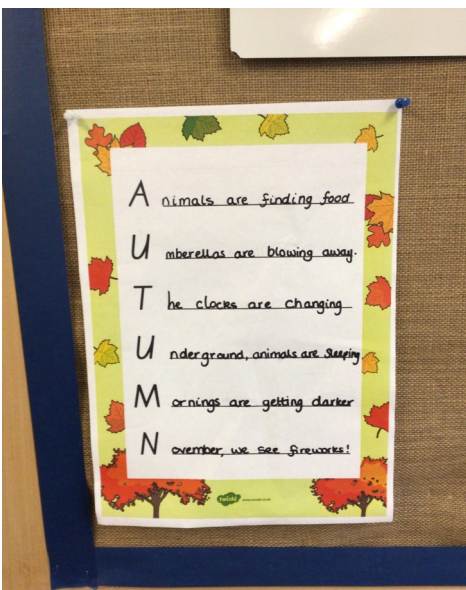 Animals are finding food
Umberellas are blowing away.
The clocks are changing
Underground, animals are sleeping
Mornings are getting darker
November, we see fireworks!
twinkl www.twinkl.co.uk